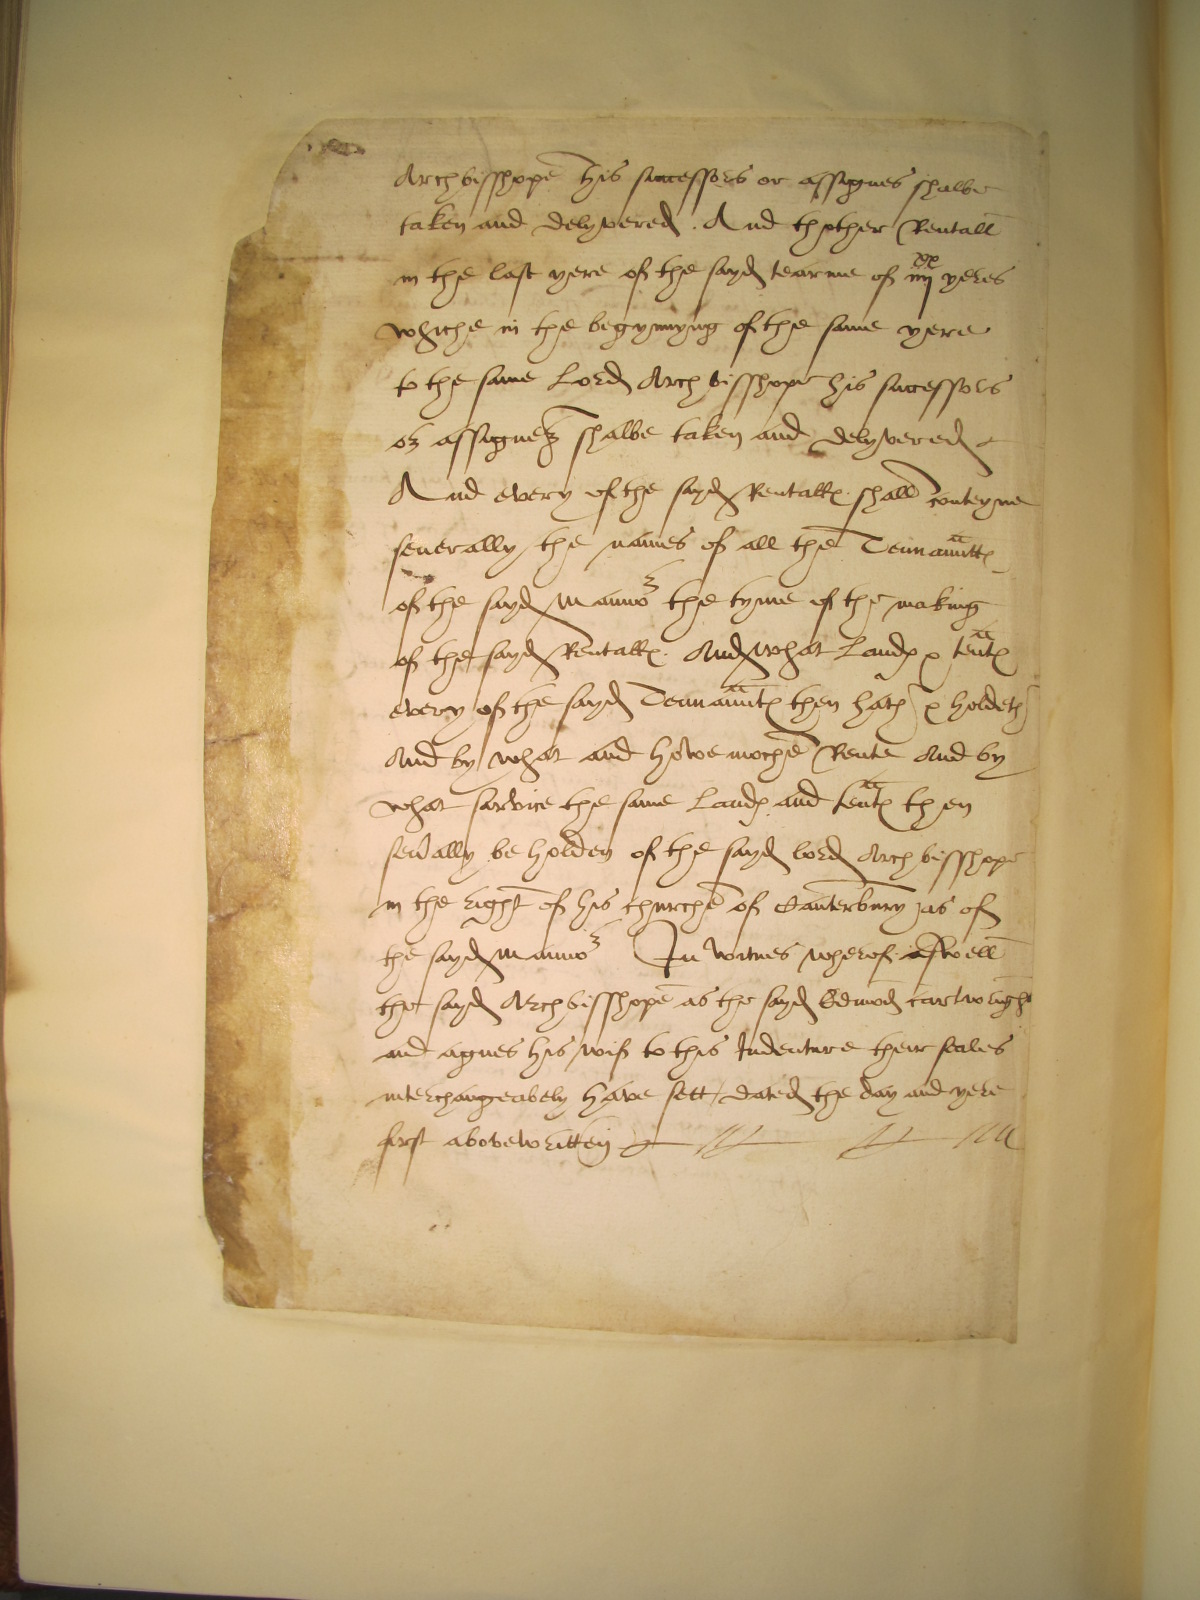 Archbisshope his successors or assignes shalbe
taken and delyvered. And thother Rentall
in the last yere of the sayd tearme of iiij xx yeres
whiche in the begynnyng of the same yere
to the same Lord Archbisshope his successors
or assignez shalbe taken and delyvered
And every of the sayd Rentall shall conteyne
severally the names of all the Tennauntt
of the sayd Mannor the tyme of the making
of the sayd Rentall. And what Land & tent
every of the sayd Tennaunt then hath & holdeth
And by what and howe moche Rente And by
what sarvice the same Land and tent then
sevally be holden of the sayd lord Archbisshope
in the right of his churche of Canterbury as of
the sayd Mannor In witnes wherof aswell
the sayd Archbisshope as the sayd Edmod cartwright
and agnes his wif to this Indenture their seales
interchangeabely have sett, dated the day and yere
first abovewritten